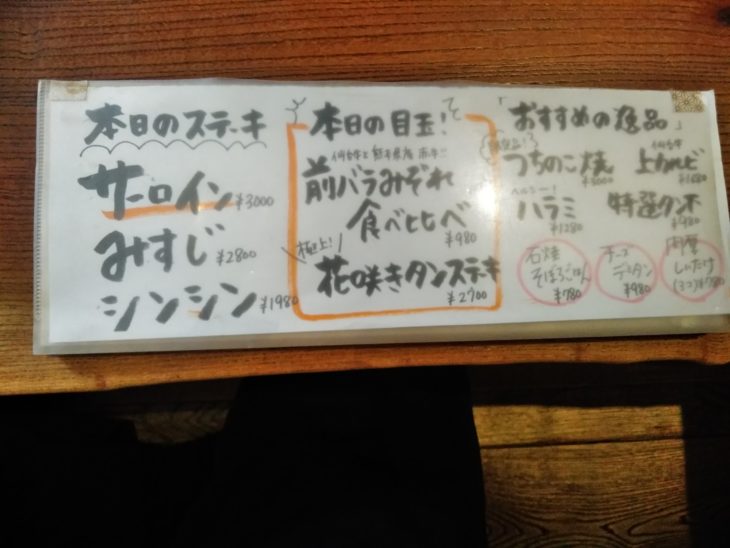 本日のステーキ
サーロイン ¥3000
みすじ ¥2800
シンシン ¥1980
本日の目玉!
仙台牛と
前バラみぞれ
食べ比べ
¥980
極上!
花咲きタンステーキ
¥2700
「おすすめの逸品」
つちのこ焼
仙台牛
上カルビ
¥1680
ヘルシー!
ハラミ
¥1280
特選タン
¥980
石焼
そぼろごはん
¥780
チーズ
デタン
¥980
肉厚
しいたけ
(3コ)¥780